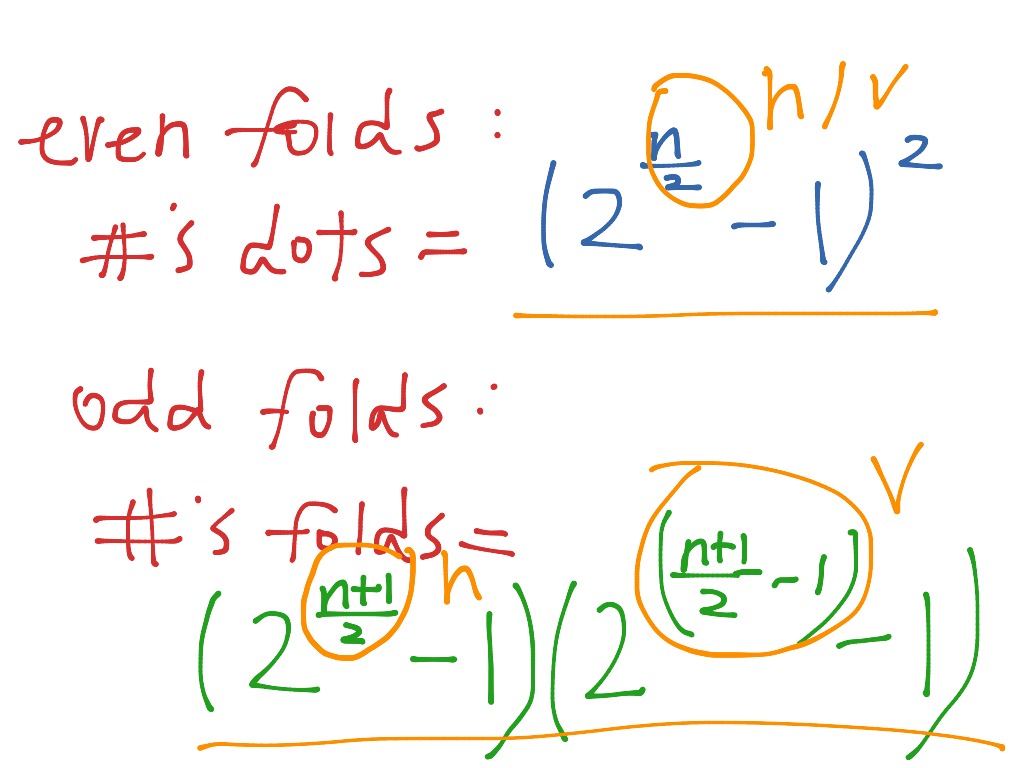 even folds: h/v
#'s dots = (2^(n/2) - 1)^2
odd folds:
#'s folds = v
h
(2^((n+1)/2) - 1)(2^((n+1)/2 - 1) - 1)